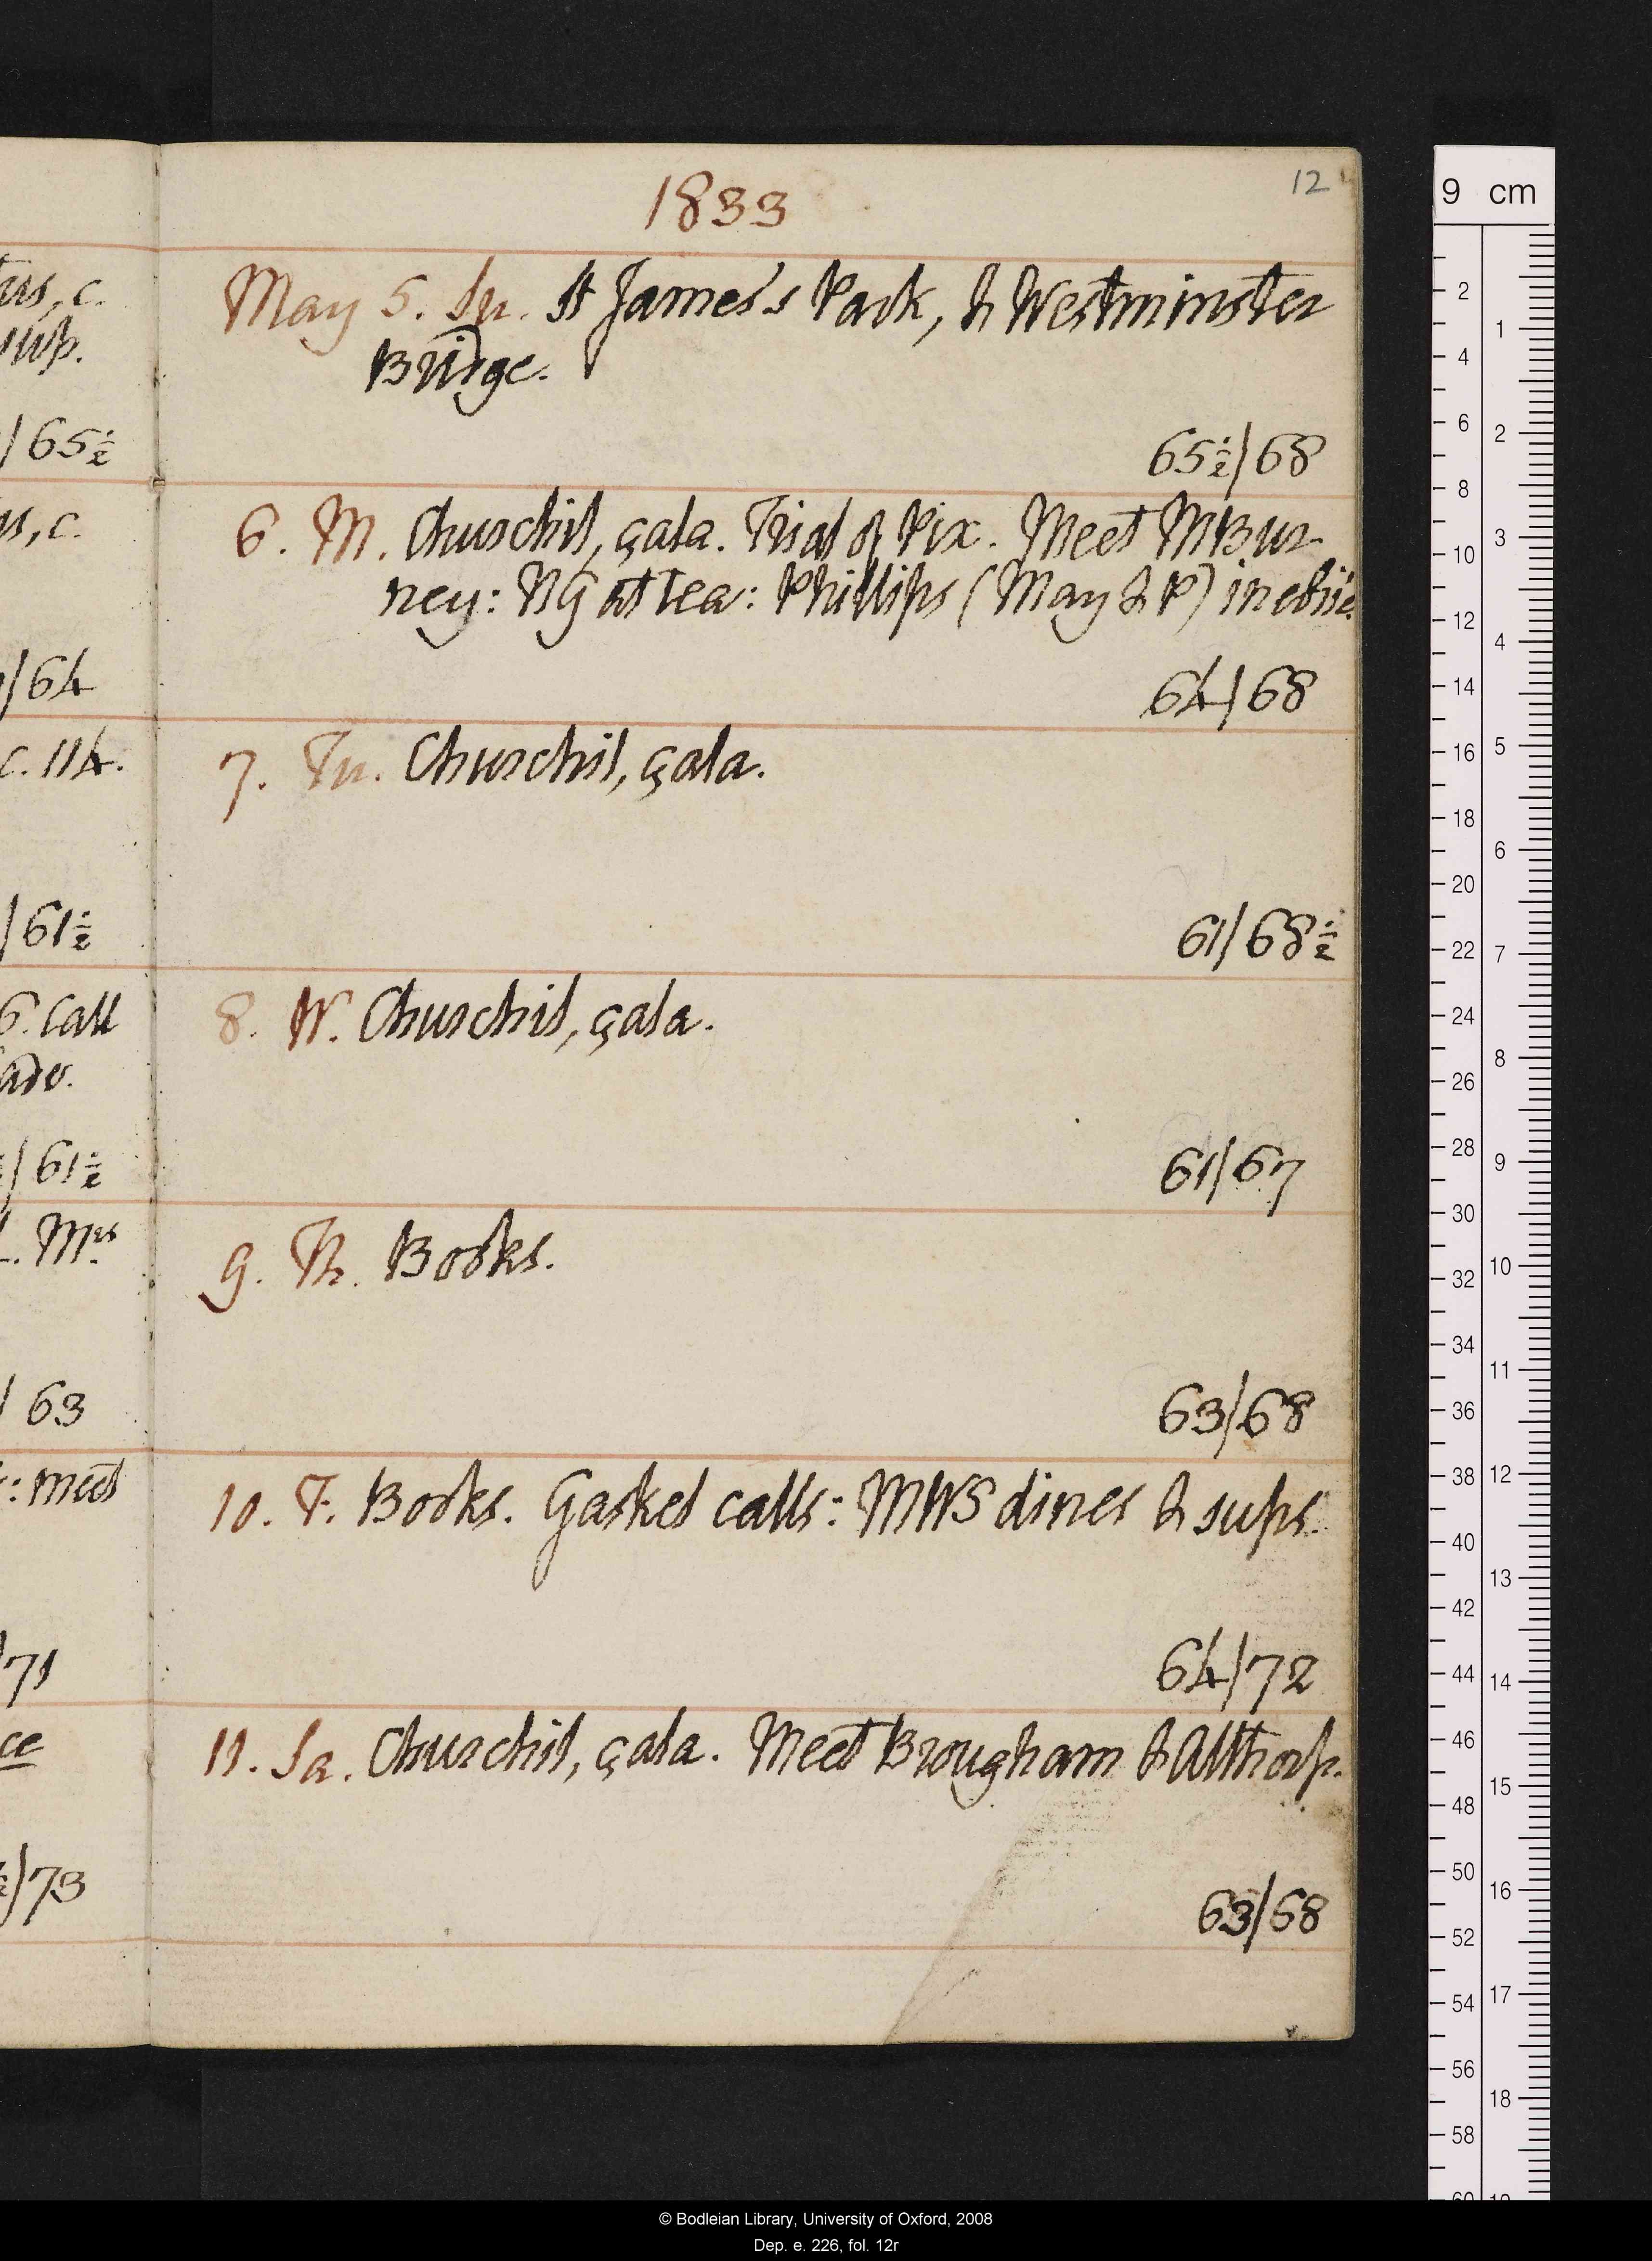 1833
12
May 5. Su. St James's Park, & Westminster
Bridge.
65½/68
6. M. Churchil, çala. Trial of Pix. Meet MBur-
ney: NG at tea: Phillips (May & P) in
64/68
7. Tu. Churchil, çala.
61/68½
8. W. Churchil, çala.
61/67
9. Th. Books.
63/68
10. F. Books. Gaskel calls: MWS dines & sups.
64/72
11. Sa. Churchil, çala. Meet Brougham & Althorp.
63/68
c.
sup.
/65½
c.
/64
c. 114.
/61½
G. call
/61½
L. Mrs
/63
: meet
/71
ce
½/73
9 cm
2
4
6
8
10
12
14
16
18
20
22
24
26
28
30
32
34
36
38
40
42
44
46
48
50
52
54
56
58
60
1
2
3
4
5
6
7
8
9
10
11
12
13
14
15
16
17
18
19
© Bodleian Library, University of Oxford, 2008
Dep. e. 226, fol. 12r